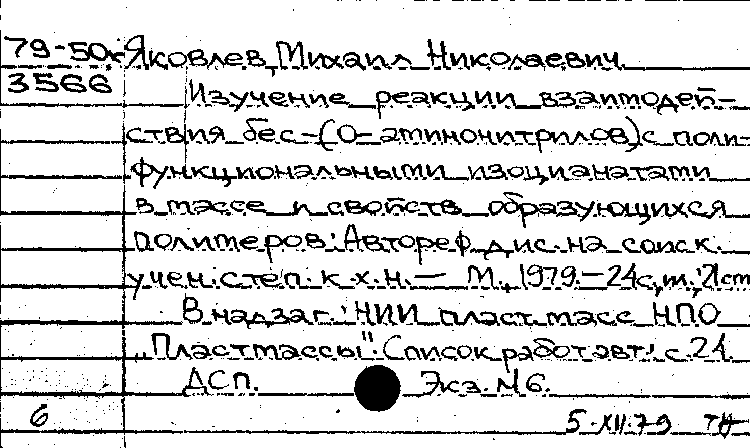 79-50к Яковлев, Михаил Николаевич
3566
Изучение реакции взаимодей-
ствия бес-(О-аминонитрилов) с поли-
функциональными изоцианатами
в массе и свойств образующихся
полимеров: Автореф. дис. на соиск.
учен. степ. к.х.н. — М., 1979. — 24 с,
В надзаг.: НИИ пласт. масс НПО
"Пластмассы". Список работ авт.: с. 24
ДСП. Экз. №6.
6 5.XII.79